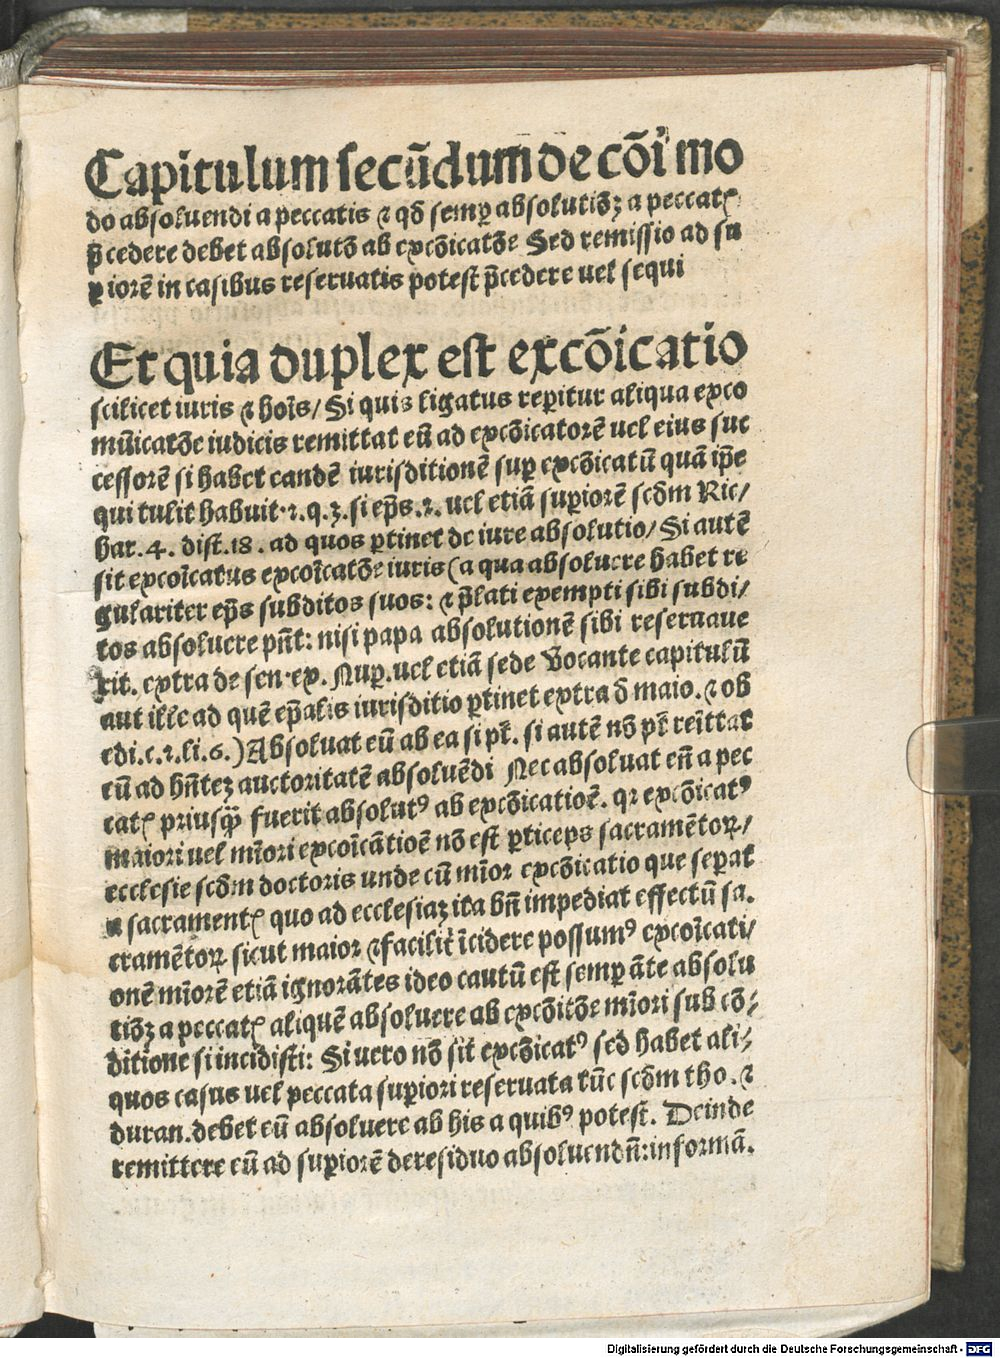 Capitulum secūdum de cōi mo
do absoluendi a peccatis ⁊ qđ semp̱ absolutiōȝ a peccatꝭ
p̄cedere debet absolutō ab excōicatōe Sed remissio ad su
ꝑiorē in casibus reseruatis potest p̄cedere uel sequi
Et quia duplex est excōicatio
scilicet iuris ⁊ hoīs/ Si quis ligatus reꝑitur aliqua exco
mūicatōe iudicis remittat eū ad excōicatorē uel eius suc
cessorē si habet eandē iurisditionē suꝑ excōicatū quā ip̄e
qui tulit habuit.2.q.3.si ep̄s.2. uel etiā suꝑiorē scd̄m Ric/
har.4. dist.18. ad quos ꝑtinet de iure absolutio/ Si autē
sit excoīcatus excoīcatōe iuris (a qua absoluere habet re
gulariter ep̄s subditos suos: ⁊ p̄lati exempti sibi subdi/
tos absoluere pn̄t: nisi papa absolutionē sibi reseruaue
rit. extra de sen.ex. Nuꝑ.uel etiā sede Vocante capitulū
aut ille ad quē ep̄alis iurisditio ꝑtinet extra đ maio.⁊ ob
edi.c.2.li.6.) Absoluat eū ab ea si pt̄. si autē nō pt̄ reīttat
eū ad hn̄teȝ auctoritatē absoluēdi Nec absoluat eū a pec
catꝭ priusq̄ꝫ fuerit absolutꝰ ab excōicatioē. qꝛ excōicatꝰ
maiori uel mīori excoīcātioē nō est ꝑticeps sacramētoꝝ/
ecclesie scd̄m doctoris unde cū mīor excōicatio que seꝑat
a sacramentꝭ quo ad ecclesiaȝ ita bn̄ impediat effectū sa.
cramētoꝝ sicut maior ⁊ facilit̄ īcidere possumꝰ excoīcati/
onē mīorē etiā ignorātes ideo cautū est semꝑ āte absolu
tiōȝ a peccatꝭ aliquē absoluere ab excōitōe mīori sub cō/
ditione si incidisti: Si uero nō sit excōicatꝰ sed habet ali/
quos casus uel peccata suꝑiori reseruata tūc scd̄m tho.⁊
duran.debet eū absoluere ab his a quibꝰ potest. Deinde
remittere eū ad suꝑiorē de residuo absoluendū:informā.
Digitalisierung gefördert durch die Deutsche Forschungsgemeinschaft - DFG